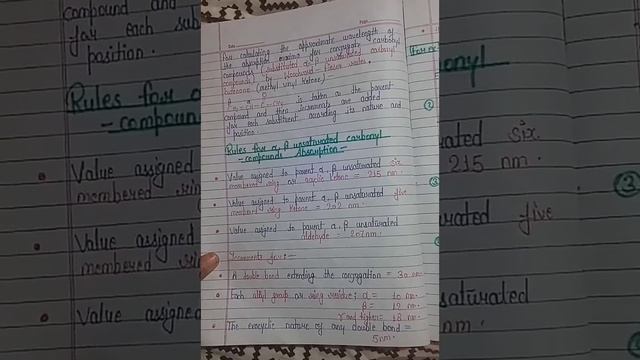 For calculating the approximate wavelength of
the absorption maxima for conjugate carbonyl
compounds (substituted α, β unsaturated carbonyl
compounds) by Woodward Fieser rules.
Butenone (methyl vinyl ketone)
is taken as the parent
compound and then increments are added
for each substituent according its nature and
position.
Rules for α, β unsaturated carbonyl
- compounds Absorption -
• Value assigned to parent α, β unsaturated six
membered ring or acyclic ketone = 215 nm.
• Value assigned to parent α, β unsaturated five
member ring ketone = 202 nm.
• Value assigned to parent α, β unsaturated
aldehyde = 207nm.
• Increments for :-
• A double bond extending the conjugation = 30 nm
• Each alkyl group or ring residue: α = 10 nm.
β = 12 nm.
γ and higher = 18 nm.
• The exocyclic nature of any double bond =
5nm.
compound and
for each subst
position.
Rules for α
- compounds
• Value assigned
membered ring
• Value assigned
membered
• Value assigned
onyl
rated six
215 nm.
rated five
saturated
③
②
③